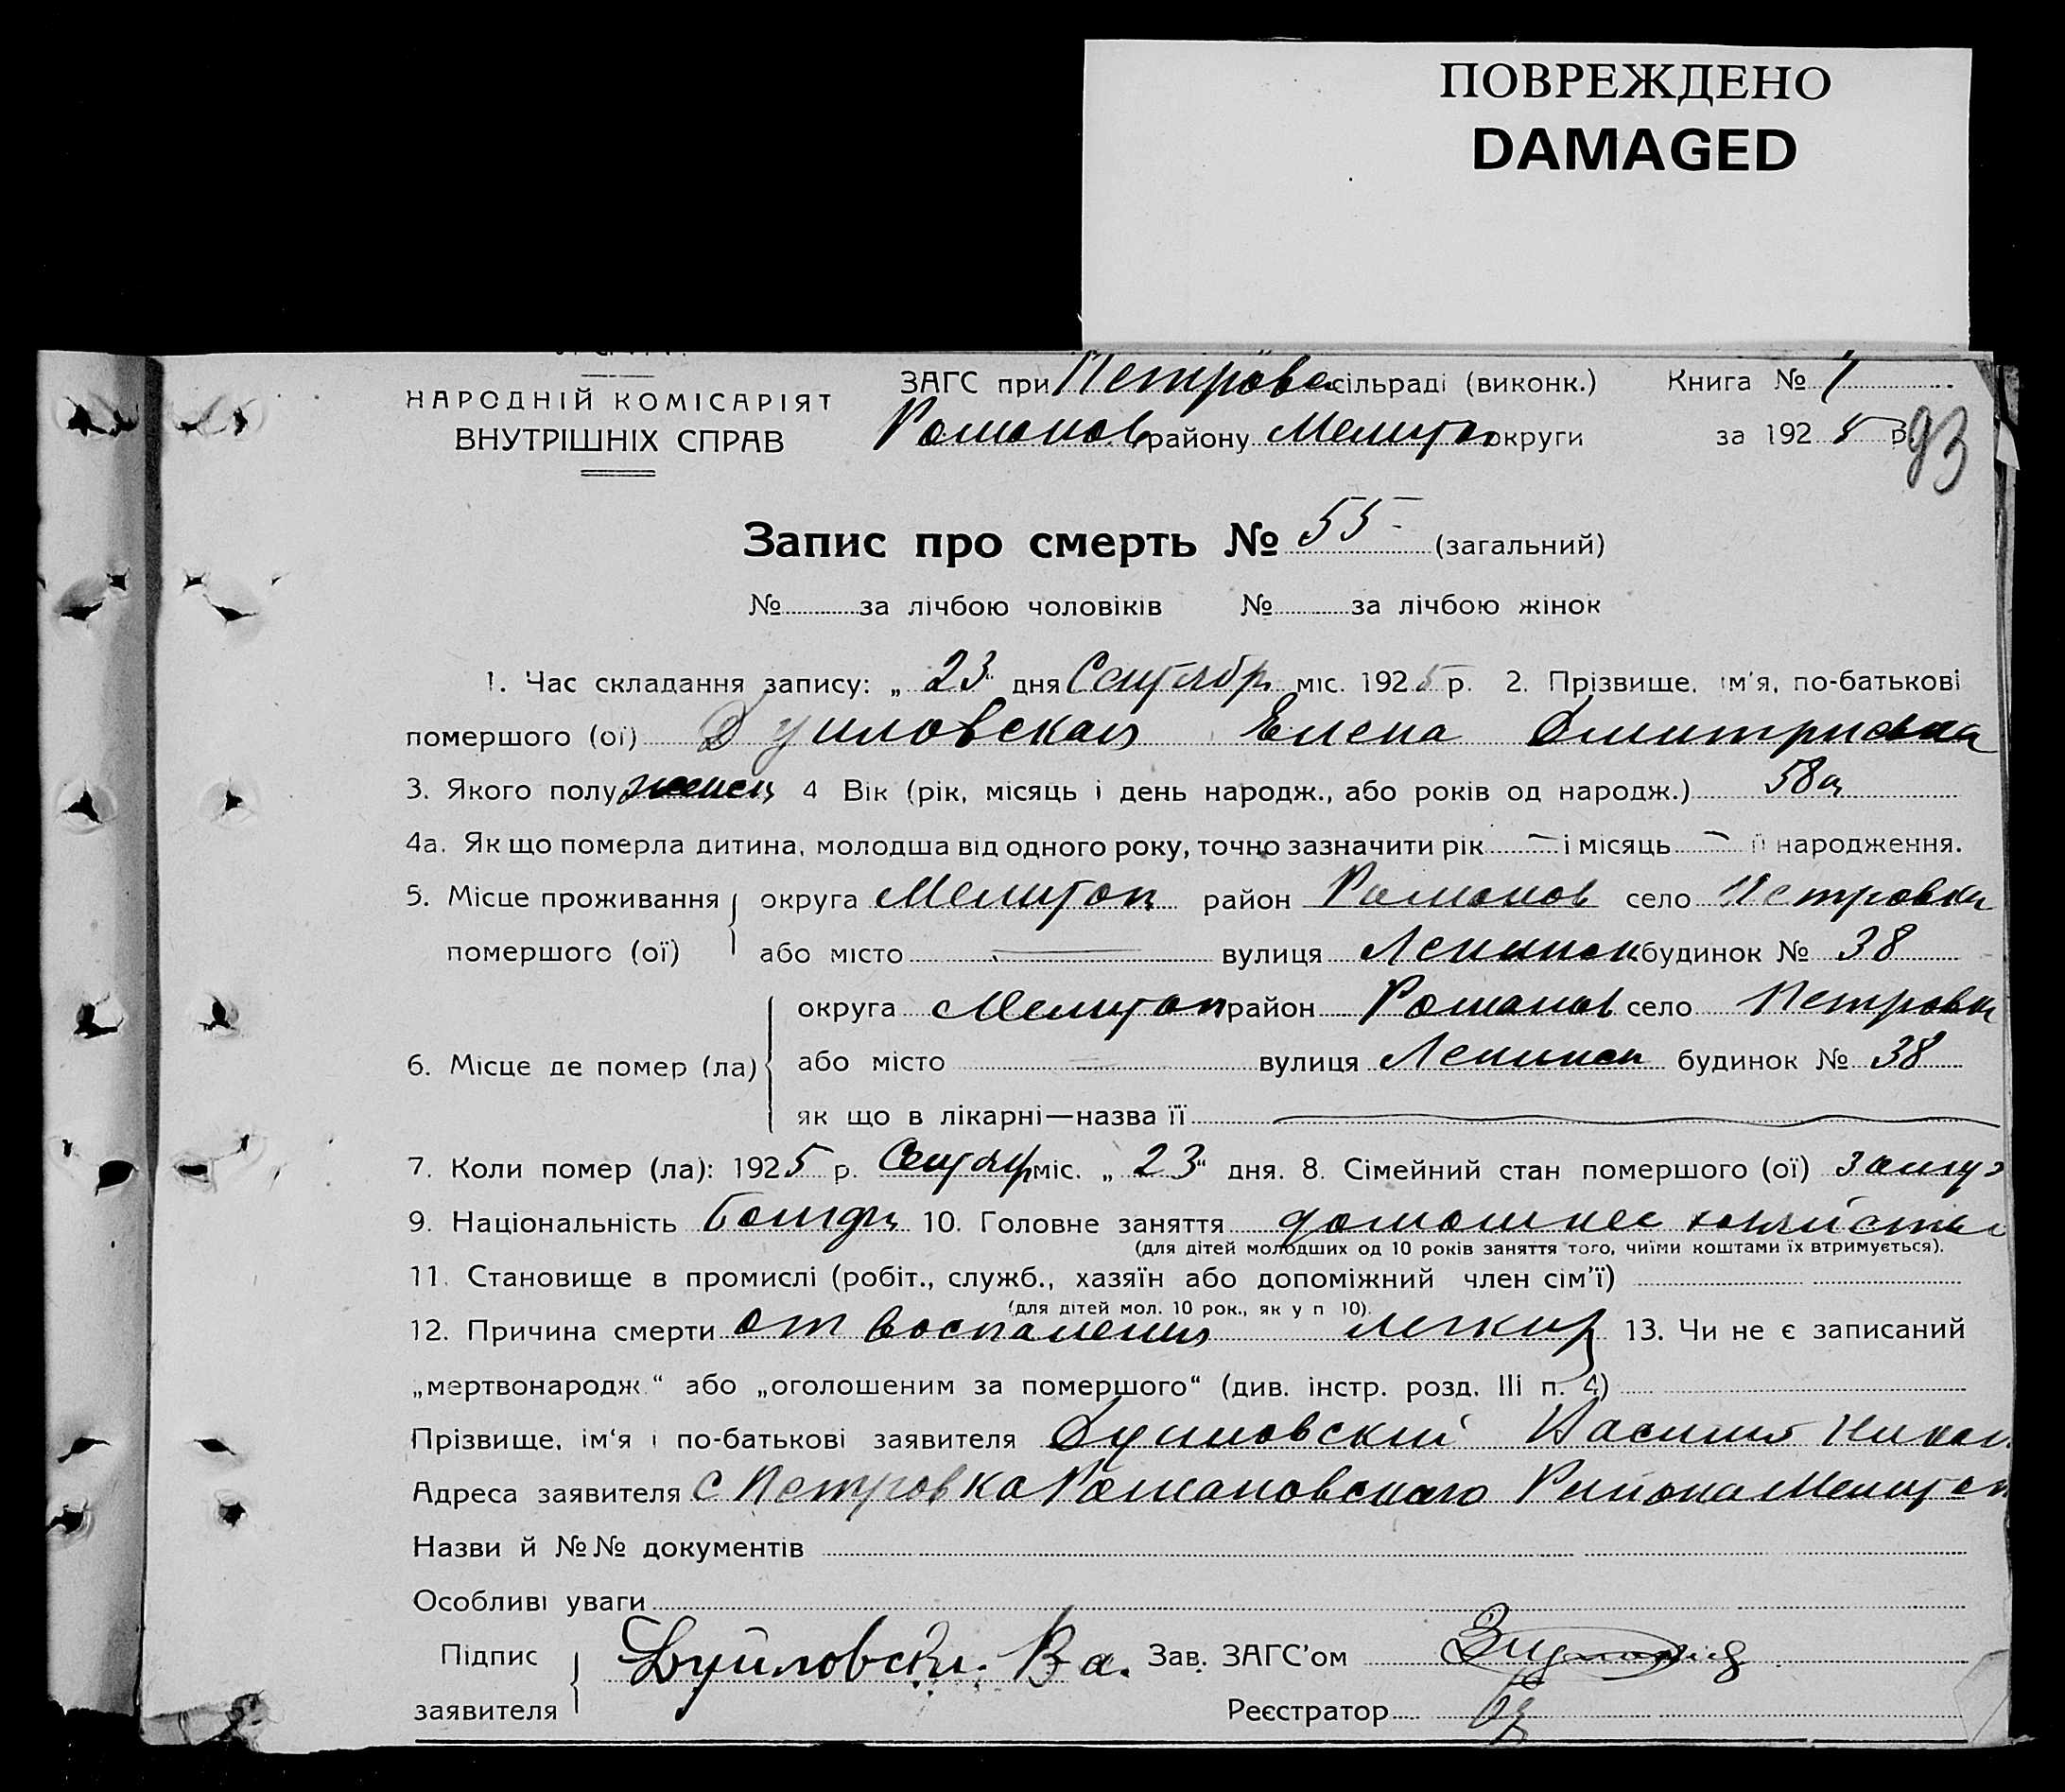 ПОВРЕЖДЕНО
DAMAGED
ЗАГС при Петров сільраді (виконк.) Книга №
НАРОДНІЙ КОМІСАРІЯТ
ВНУТРІШНІХ СПРАВ
Романов району Мелитоп округи за 192 5 р
93
Запис про смерть № 55 (загальний)
№ за лічбою чоловіків № за лічбою жінок
1. Час складання запису: „ 23 дня Сентябр міс. 192 5 р. 2. Прізвище, ім'я, по-батькові
помершого (ої) Елена Дмитриевна
3. Якого полу женск 4 Вік (рік, місяць і день народж., або років од народж.) 58
4а. Як що померла дитина, молодша від одного року, точно зазначити рік — і місяць — її народження.
5. Місце проживання округа Мелитоп район Романов село Петровка
помершого (ої) або місто — вулиця Ленинск будинок № 38
округа Мелитоп район Романов село Петровка
6. Місце де помер (ла) або місто — вулиця Ленинск будинок № 38
як що в лікарні—назва її
7. Коли помер (ла): 1925 р. Сентяб міс. „ 23“ дня. 8. Сімейний стан помершого (ої) замуж
9. Національність 10. Головне заняття домашнее хозяйство
(для дітей молодших од 10 років заняття того, чиїми коштами їх втримується).
11. Становище в промислі (робіт., служб., хазяїн або допоміжний член сім'ї)
(для дітей мол. 10 рок., як у п 10).
12. Причина смерти от воспаления легких 13. Чи не є записаний
„мертвонародж.“ або „оголошеним за помершого“ (див. інстр. розд. III п. 4)
Прізвище, ім'я і по-батькові заявителя Василий Никол
Адреса заявителя с Петровка Романовского Района Мелитоп
Назви й №№ документів
Особливі уваги
Підпис Ва. Зав. ЗАГС'ом
заявителя Реєстратор